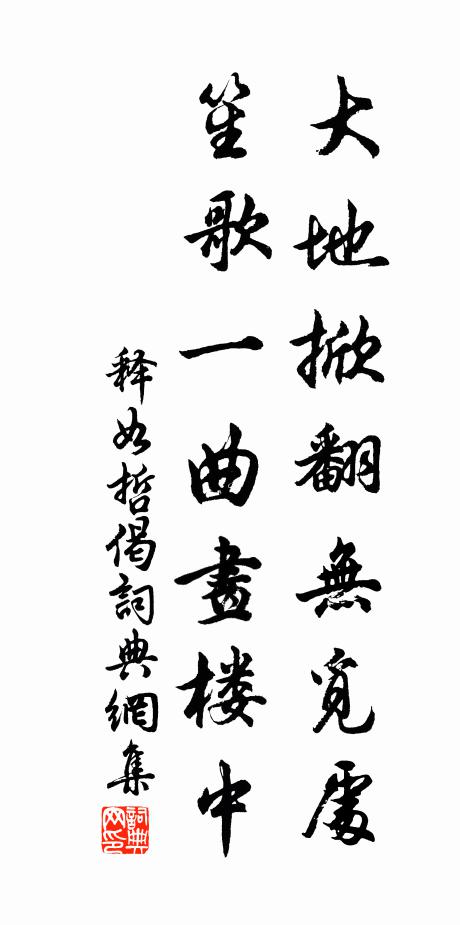 大地掀翻無覓處
笙歌一曲畫楼中
释如哲偈詞典網集
詞典网印